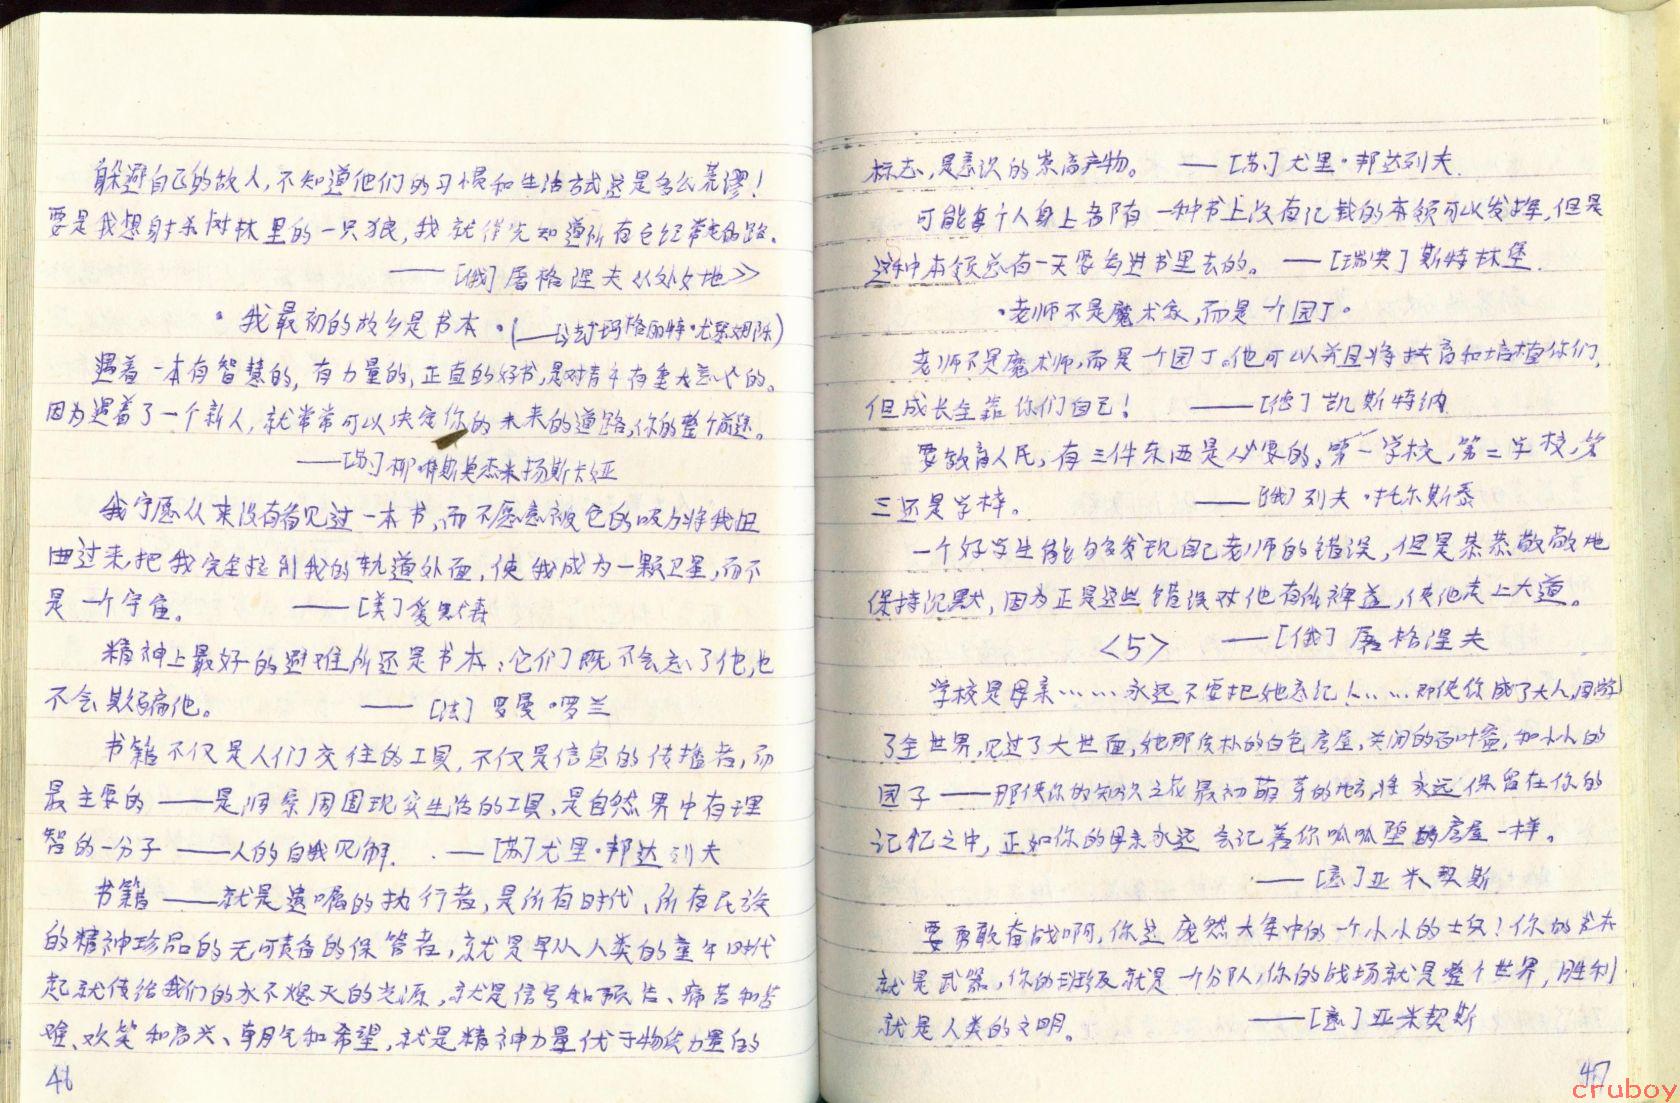 躲避自己的敌人，不知道他们的习惯和生活方式这是多么荒谬！
要是我想射杀树林里的一只狼，我就得先知道所有它经常走的路。
——[俄]屠格涅夫《处女地》
·我最初的故乡是书本·(——法 玛格丽特·尤瑟姆陈)
遇着一本有智慧的，有力量的，正直的好书，是对青年有重大意义的。
因为遇着了一个新人，就常常可以决定你的未来的道路，你的整个前途。
——[苏]柳 斯莫杰米扬斯卡娅
我宁愿从来没有看见过一本书，而不愿意被它的吸力将我扭
曲过来，把我完全拉到我的轨道外面，使我成为一颗卫星，而不
是一个宇宙。 ——[美]爱默森
精神上最好的避难所还是书本：它们既不会忘了他，也
不会欺骗他。 ——[法]罗曼·罗兰
书籍不仅是人们交往的工具，不仅是信息的传播者，而
最主要的——是洞察周围现实生活的工具，是自然界中有理
智的一分子——人的自我见解． ——[苏]尤里·邦达列夫
书籍——就是遗嘱的执行者，是所有时代、所有民族
的精神珍品的无可责备的保管者，就是早从人类的童年时代
起就传给我们的永不熄灭的光源，就是信号和预告、痛苦和苦
难、欢笑和高兴、朝气和希望，就是精神力量优于物质力量的
46
标志，是意识的崇高产物。 ——[苏]尤里·邦达列夫．
可能每个人身上都有一种书上没有记载的本领可以发挥，但是
这种本领总有一天要写进书里去的。 ——[瑞典]斯特林堡．
·老师不是魔术家，而是个园丁·
老师不是魔术师，而是一个园丁。他可以并且将扶育和培植你们，
但成长全靠你们自己！ ——[德]凯斯特纳
要教育人民，有三件东西是必要的。第一学校，第二学校，第
三还是学样。 ——[俄]列夫·托尔斯泰
一个好学生能够发现自己老师的错误，但是恭恭敬敬地
保持沉默，因为正是这些错误对他有所裨益，使他走上大道。
<5> ——[俄]屠格涅夫
学校是母亲……永远不要把她忘记！……即使你成了大人，周游
了全世界，见过了大世面，她那质朴的白色房屋，关闭的百叶窗，和小小的
园子——那使你的知识之花最初萌芽的地方，将永远保留在你的
记忆之中，正如你的母亲永远会记着你呱呱堕的房屋一样。
——[意]亚米契斯
要勇敢奋战啊，你这庞然大军中的一个小小的士兵！你的书本
就是武器，你的班级就是一个分队，你的战场就是整个世界，胜利
就是人类的文明。 ——[意]亚米契斯
47
cruboy